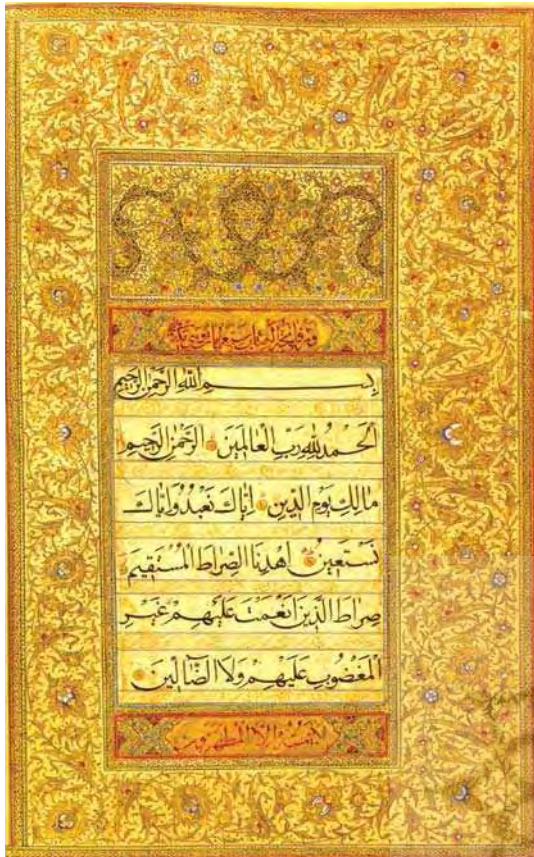 بِسْــمِ اللهِ الرَّحْمٰنِ الرَّحِيمِ
اَلْحَـمْدُ لِلّٰهِ رَبِّ الْعَالَمِينَ الرَّحْمٰنِ الرَّحِيمِ
مَالِكِ يَوْمِ الدِّينِ اِيَّاكَ نَعْبُدُ وَاِيَّاكَ
نَسْتَعِينُ اِهْدِنَا الصِّرَاطَ الْمُسْتَقِيمَ
صِرَاطَ الَّذِينَ اَنْعَمْتَ عَلَيْهِمْ غَيْرِ
الْمَغْضُوبِ عَلَيْهِمْ وَلَا الضَّالِّينَ
لا يمسه الا المطهرون